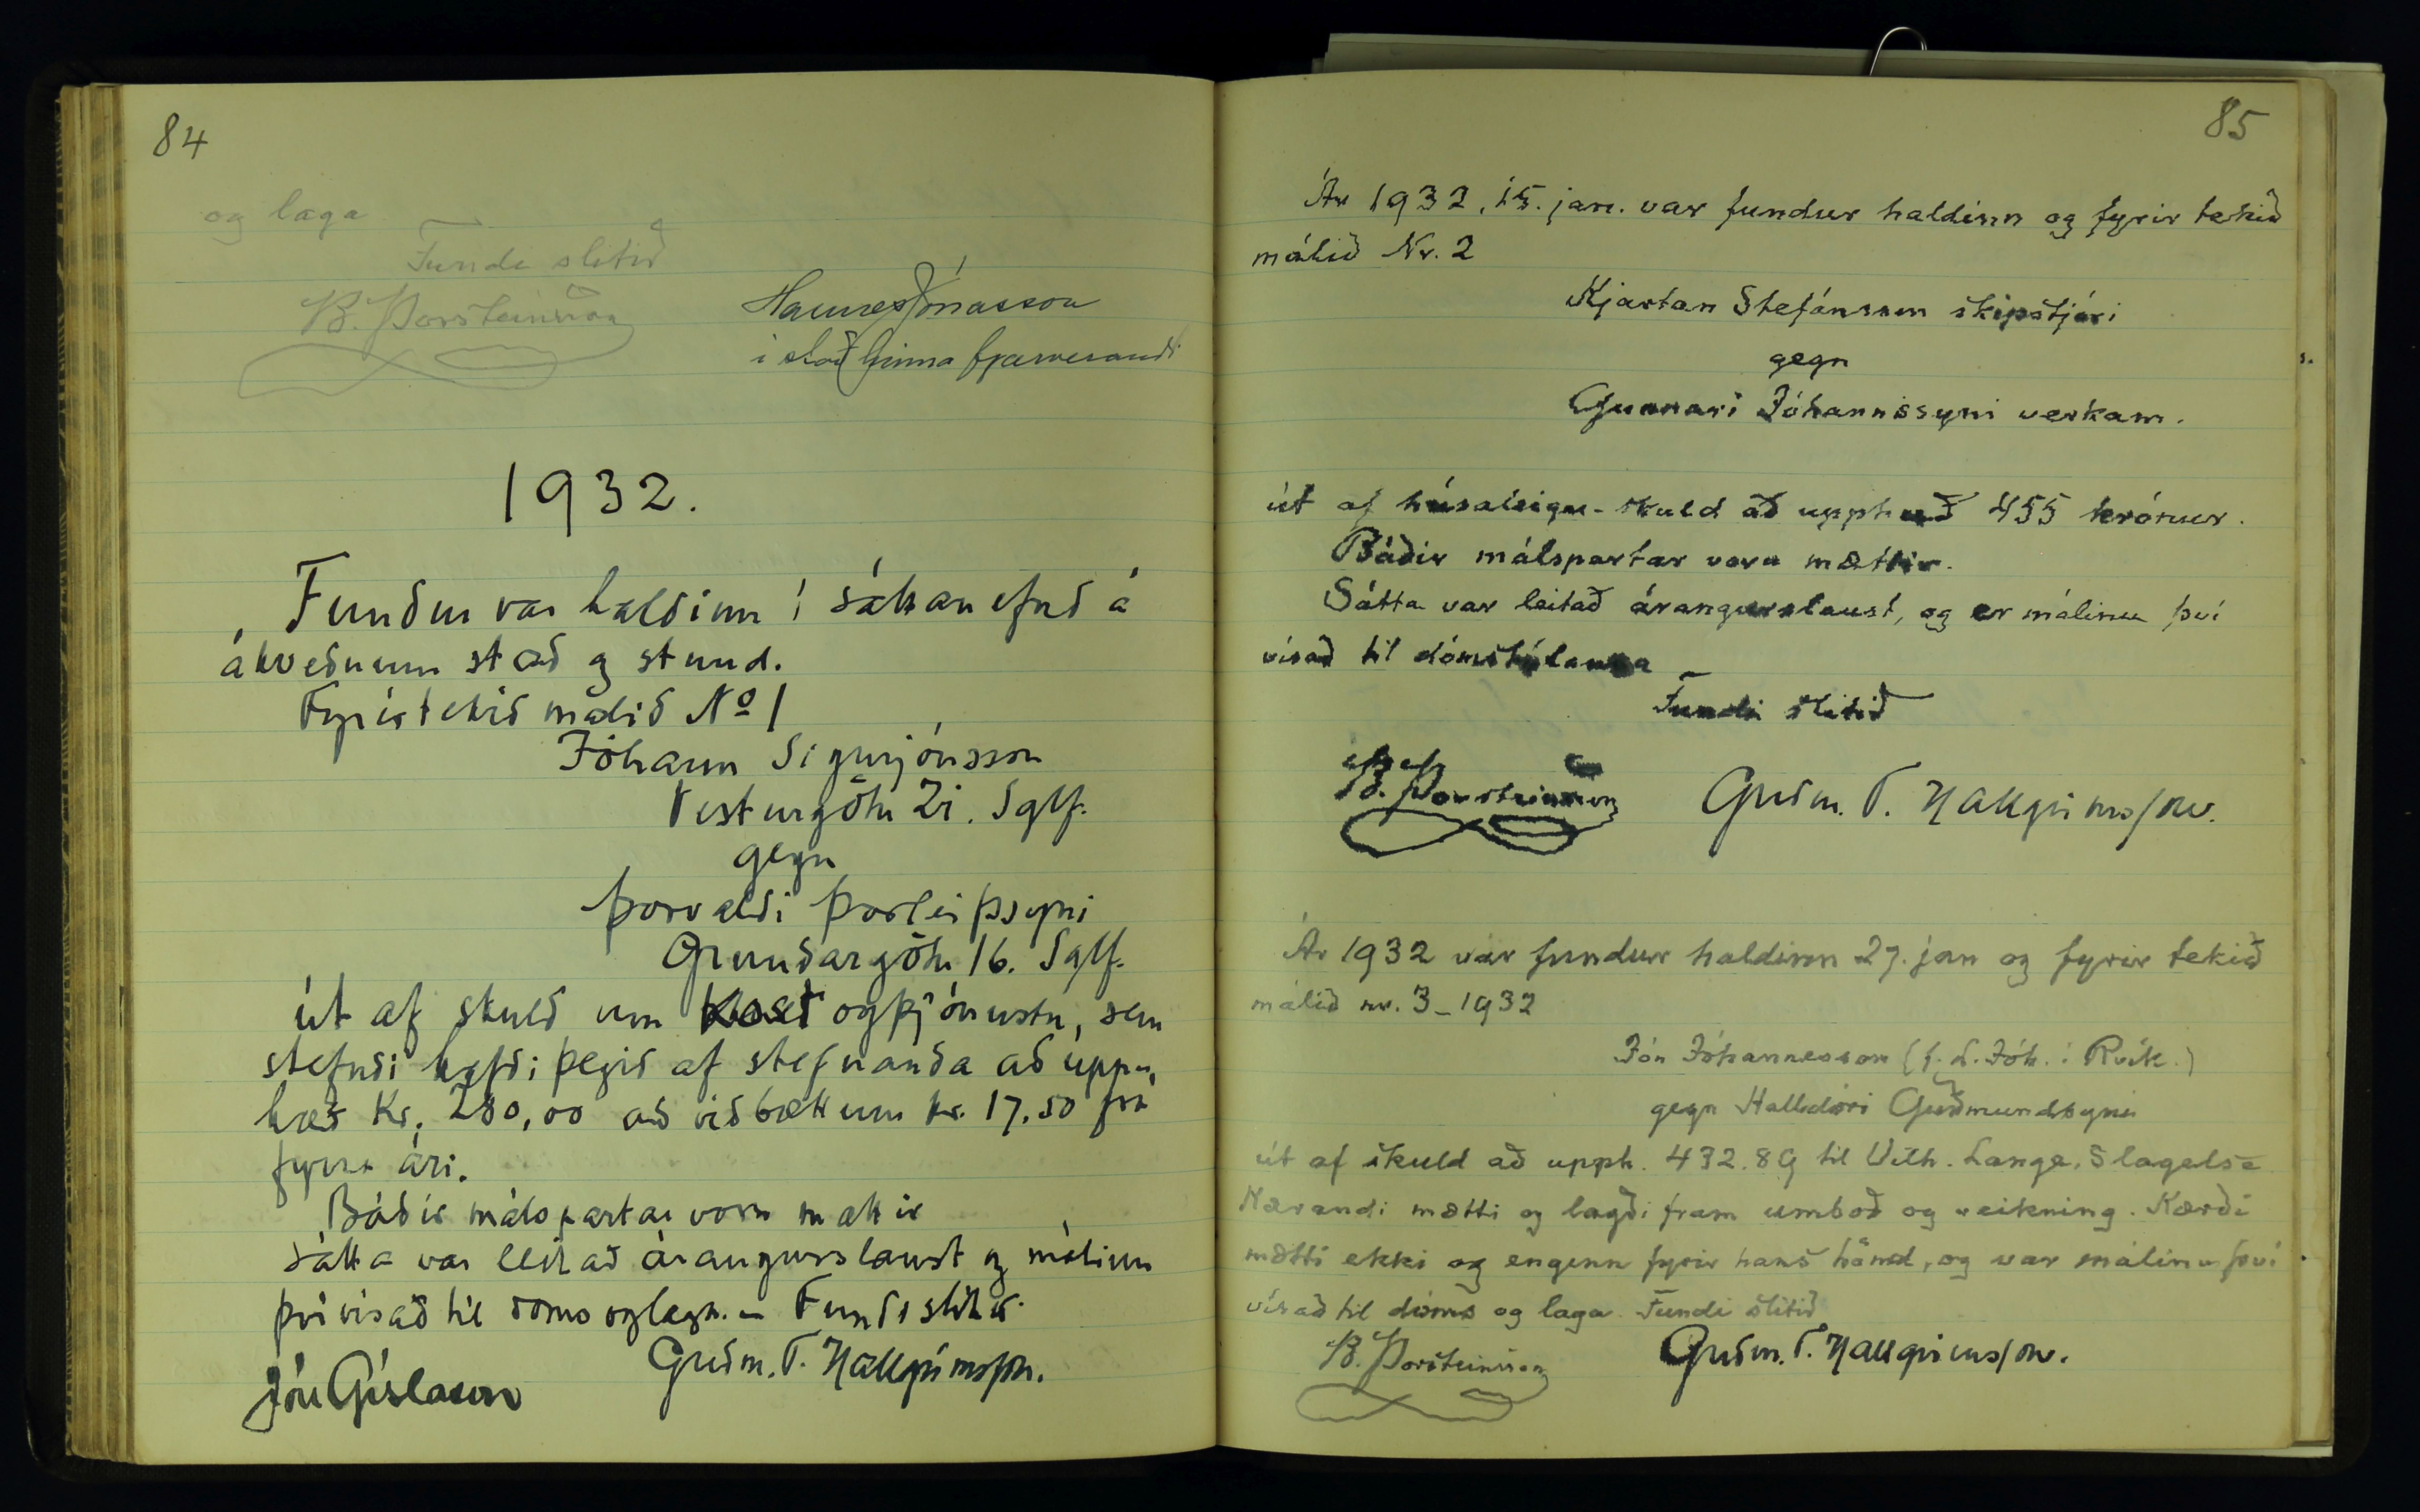 84
og laga
Fundi slitið
B. Þorsteinsson
Hannes Jónasson
í stað hinna fjarverandi
1932.
Fundur var haldinn í sáttanefnd á
ákveðnum stað og stund.
Fyrirtekið málið No 1
Jóhann Sigurjónsson
Vesturgötu Sglf.
gegn
Þorvaldi Þorleifssyni
Grundargötu 16. Sglf.
út af skuld um og þjónustu, sem
stefndi hefði þegið af stefnanda að upp-
hæð Kr. 280,00 að viðbættum kr. 17.50 frá
fyrra ári.
Báðir málspartar voru mættir
Sátta var leitað árangurslaust og málinu
því vísað til doms og laga. - Fundi slitið.
Guðm. T. Hallgrímsson.
Jón Gíslason
85
Ár 1932, 15. jan. var fundur haldinn og fyrir tekið
málið Nr. 2
Kjartan Stefánsson skipstjóri
gegn
Gunnari Jóhannssyni verkam.
út af húsaleigu-skuld að upphæð 455 krónur.
Báðir málspartar voru mættir.
Sátta var leitað árangurslaust, og er málinu því
vísað til dómstólanna
Fundi slitið
B. Þorsteinsson
Guðm. T. Hallgrímsson.
Ár 1932 var fundur haldinn 27. jan og fyrir tekið
málið nr. 3-1932
Jón Jóhannesson (f. h. Jóh. í Rvík.)
gegn Halldóri Guðmundssyni
út af skuld að upph. 432.89 til Vilh. Lange, Slagelse
Kærandi mætti og lagði fram umboð og reikning. Kærði
mætti ekki og enginn fyrir hans hönd, og var málinu því
vísað til dóms og laga. Fundi slitið
B. Þorsteinsson
Guðm. T. Hallgrímsson.